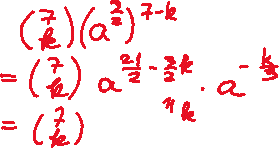 (7 k)(a^{3/2})^{7-k}
= (7 k) a^{21/2 - 3/2 k} · a^{-k/3}
= (7 k)